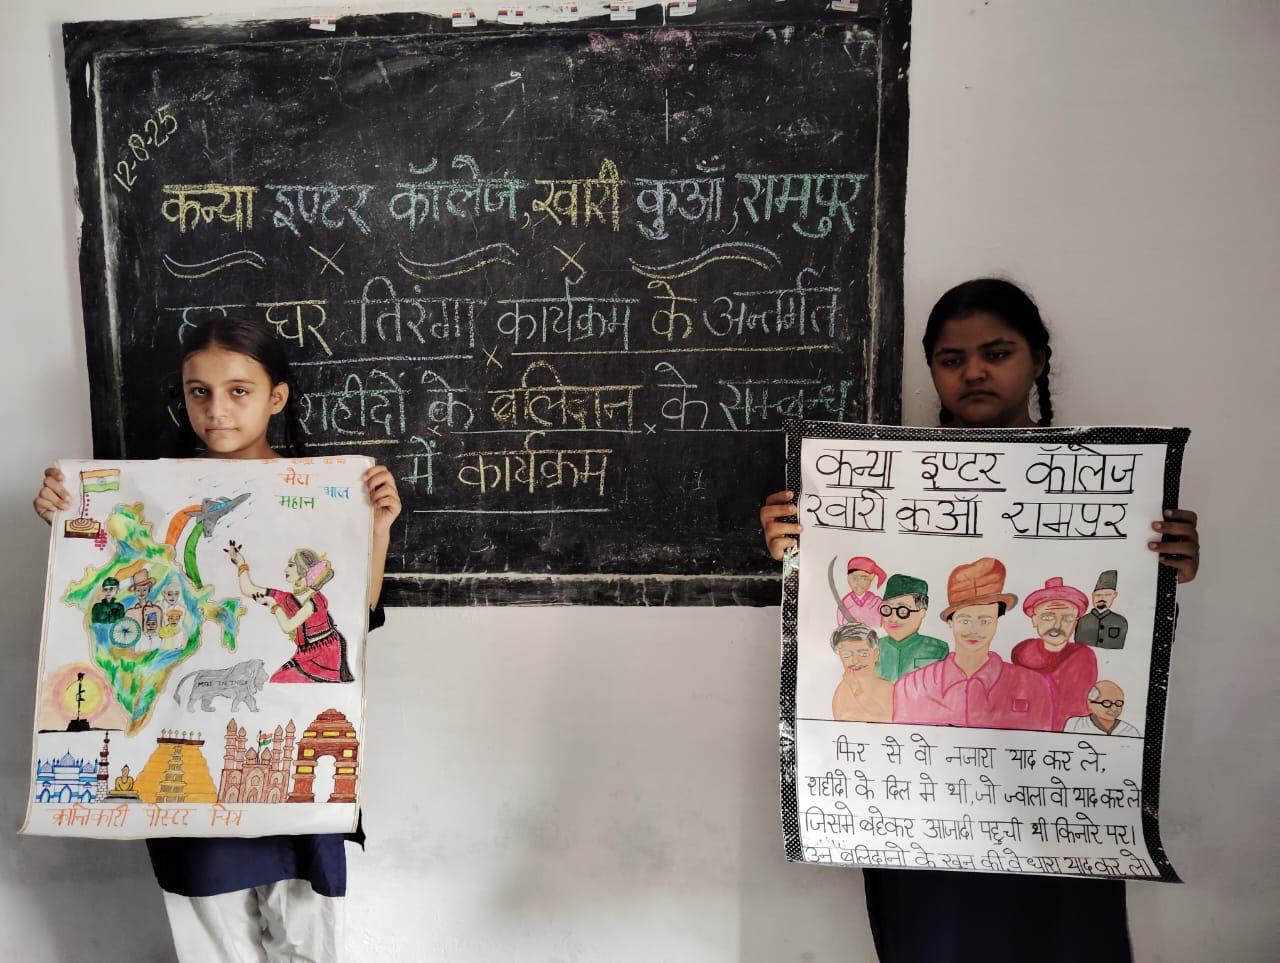 12-8-25
कन्या इण्टर कॉलेज, खारी कुंआँ, रामपुर
हर घर तिरंगा कार्यक्रम के अन्तर्गत
शहीदों के बलिदान के सम्बन्ध
में कार्यक्रम
मेरा
भारत
महान
MAKE IN INDIA
क्रान्तिकारी पोस्टर चित्र
कन्या इण्टर कॉलेज
खारी कुआँ रामपुर
फिर से वो नजारा याद कर ले,
शहीदो के दिल मे थी, जो ज्वाला वो याद कर ले
जिसमे बहेकर आजादी पहुची थी किनारे पर।
उन बलिदानो के खून की वे धारा याद कर ले।